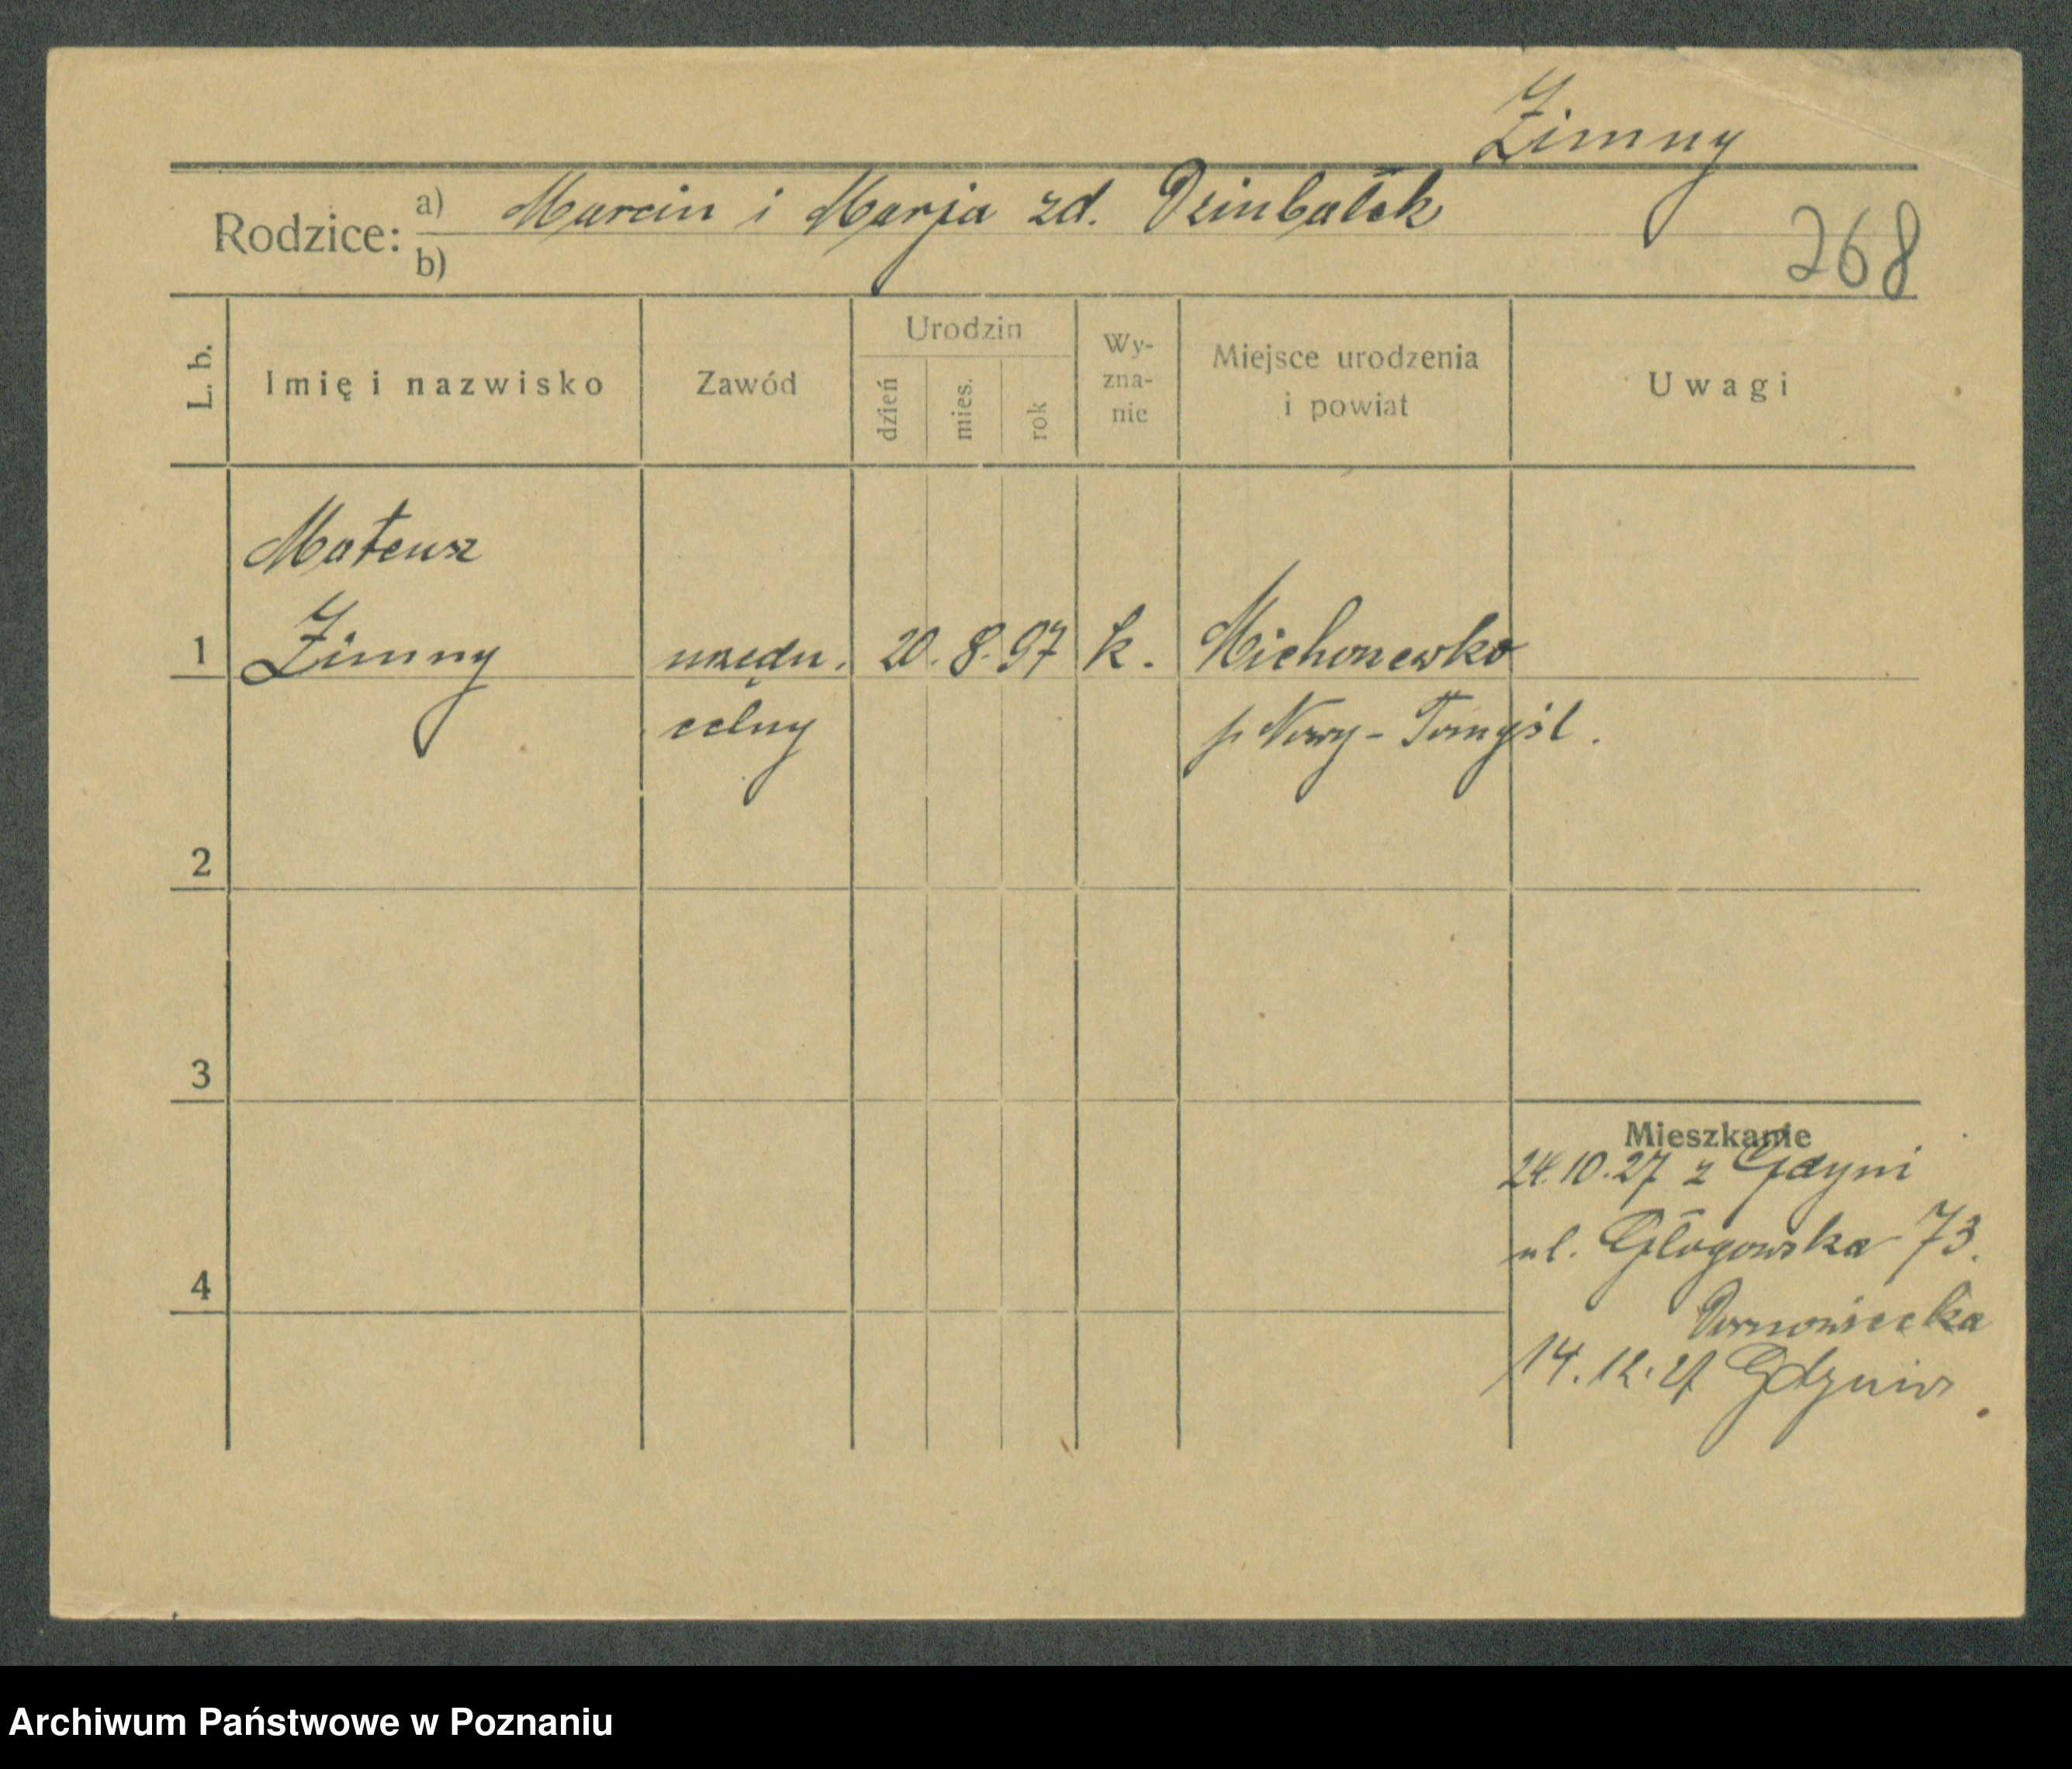 Zimny
Rodzice: a) Marcin i Marja zd. Dziubałek
b)
268
L. b.
Imię i nazwisko
Zawód
Urodzin
dzień
mies.
rok
Wy-
zna-
nie
Miejsce urodzenia
i powiat
Uwagi
Mateusz
1 Zimny urzędn. 20. 8. 97 k. Michorzewko
celny p Nowy-Tomyśl.
2
3
4
Mieszkanie
24.10.27 z Gdyni
ul. Głogowska 73.
14.12.27 Gdynia
Archiwum Państwowe w Poznaniu